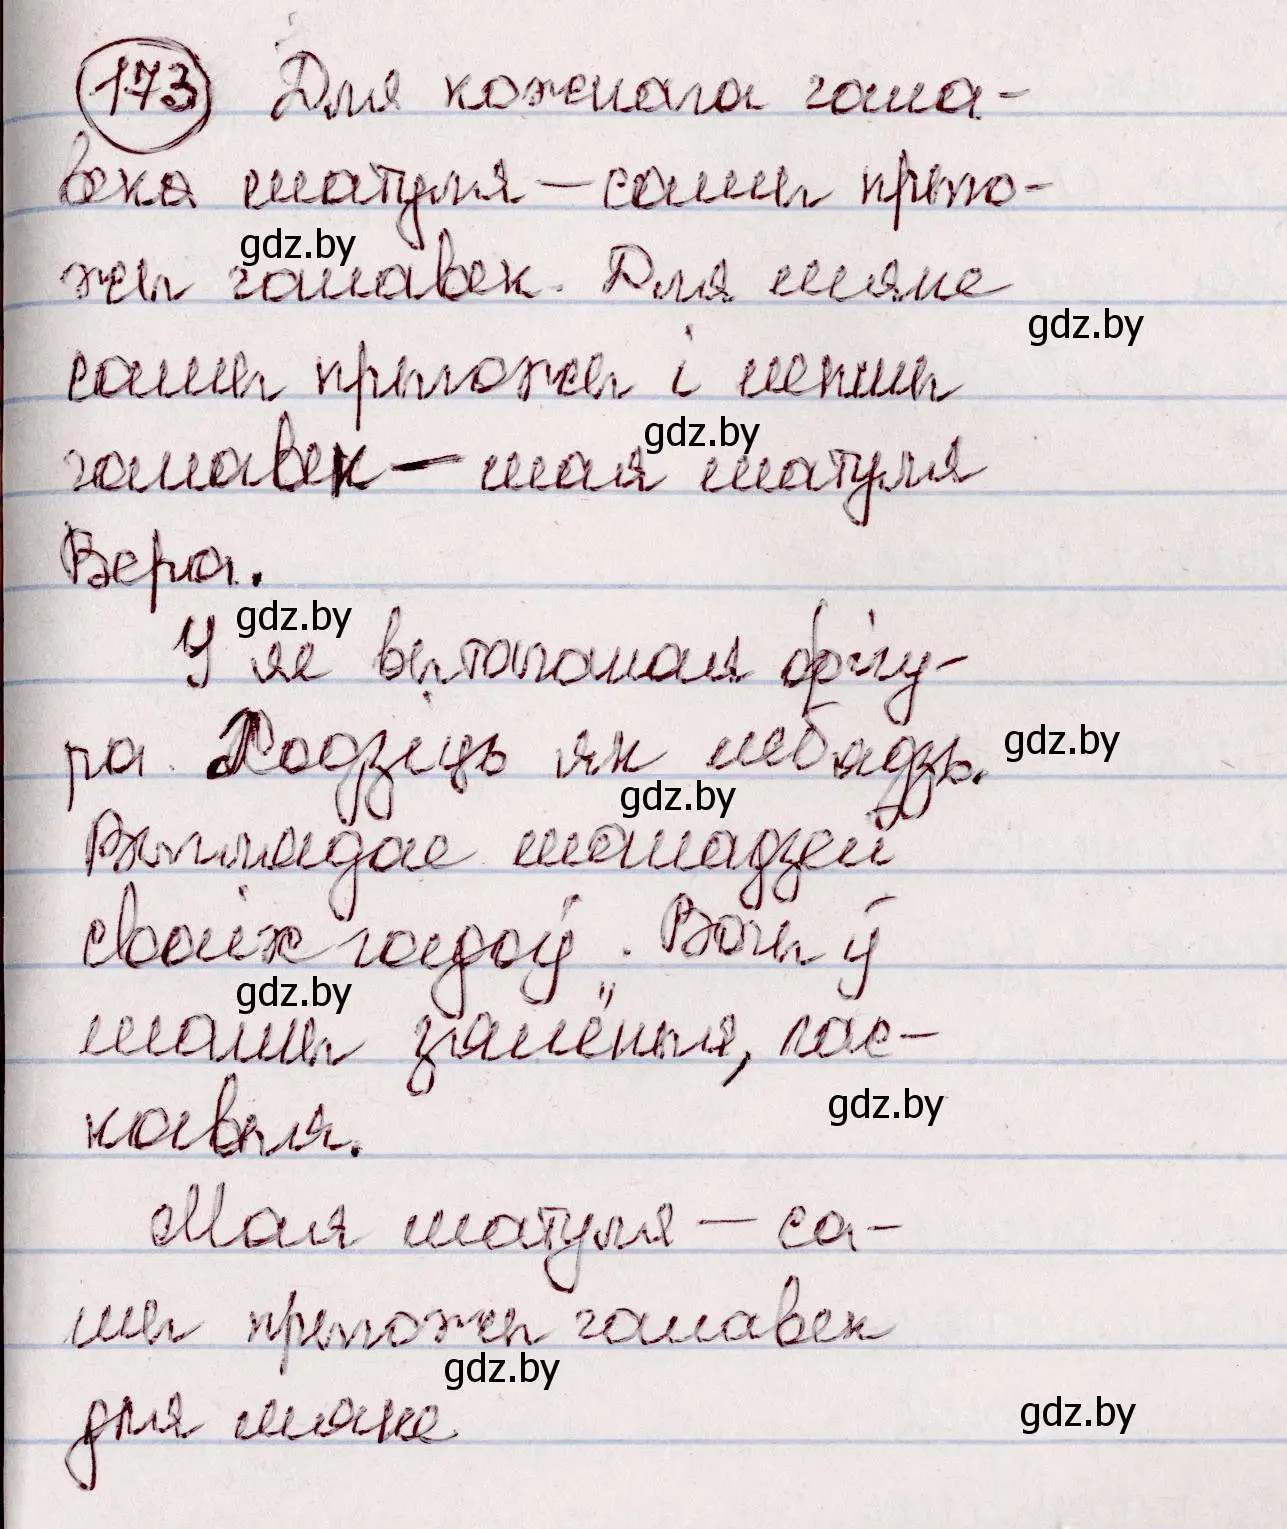 173 Для кожнага чала-
века матуля – самы прыго-
жы чалавек. Для мяне
самы прыгожы і мілы
чалавек – мая матуля
Вера.
У яе вытанчаная фігу-
ра. Ходзіць як лебядзь.
Выглядае маладзей
сваіх гадоў. Вочы ў
мамы зялёныя, лас-
кавыя.
Мая матуля – са-
мы прыгожы чалавек
для мяне
gdz.by
gdz.by
gdz.by
gdz.by
gdz.by
gdz.by
gdz.by
gdz.by
gdz.by
gdz.by